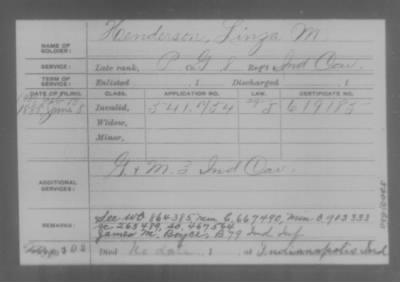 NAME OF SOLDIER: Henderson, Linza M.
SERVICE: Late rank, P Co. G, 8 Reg't Ind Cav.
TERM OF SERVICE: Enlisted , 1 Discharged , 1
DATE OF FILING. CLASS. APPLICATION NO. LAW. CERTIFICATE NO.
1885 June 5 Invalid, 541.754 619185
Widow,
Minor,
ADDITIONAL SERVICES: G & M. 3 Ind Cav.
REMARKS: See WO 864385 min C. 667490, Min C. 903333
265489, 467564
James M. Boyce, B 79 Ind Inf
Died No date , 1 , at Indianapolis Ind